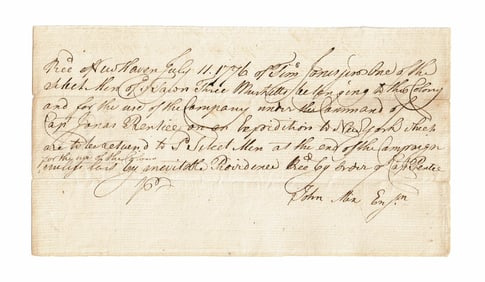 Recd New Haven July 11. 1776 of Timo Jones junr One of the
Select Men of Sd Town Three Musketts belonging to the Colony
and for the use of the Company under the Command of
Capt Jonas Prentice on an Expedition to New York which
are to be returnd to Sd Select Men at the end of the Campaign
for the use of the
unless lost by inevitable Providence Recd by Order of Capt Prentice
John Mix Ensn